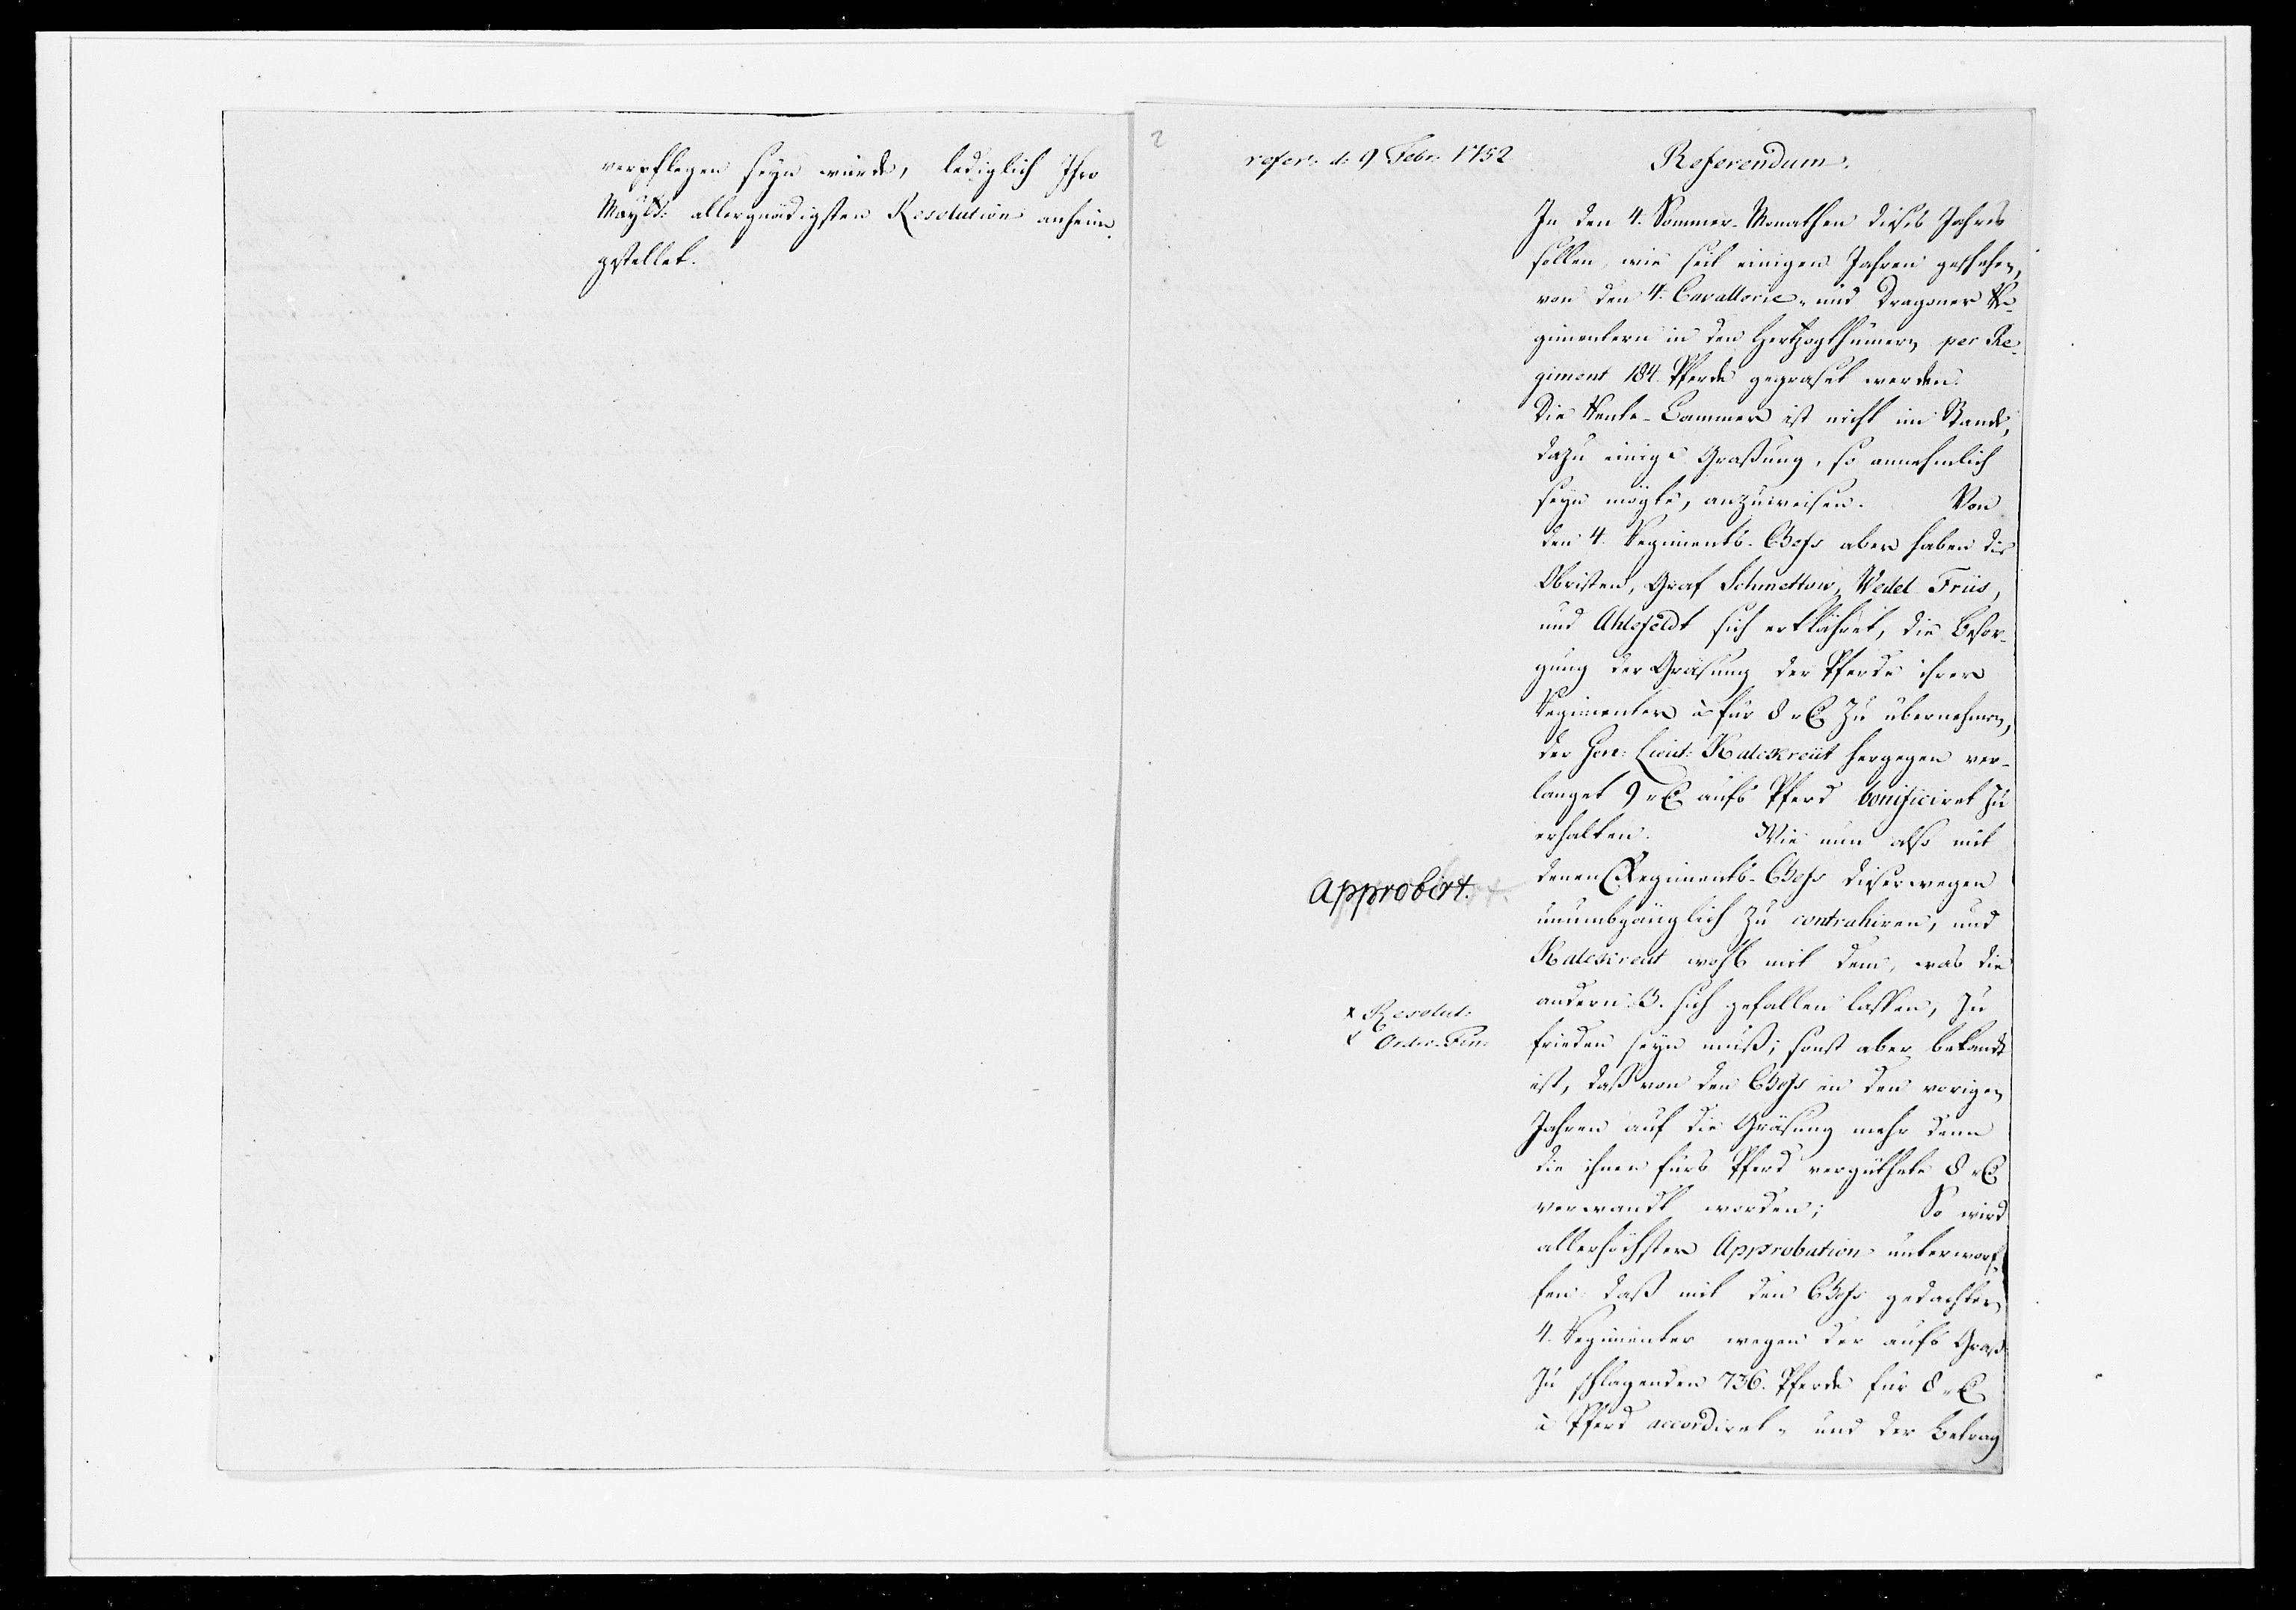 verpflegen seyn würde, lediglich Ihro
Maytt: allergnädigsten Resolution anheim
gestellet.
2
refer: d: 9 Febr: 1752
Referendum.
In den 4. Sommer-Monathen dieses Jahres
sollen, wie seit einigen Jahren geschehen,
von den 4. Cavallerie- und Dragoner Re-
gimentern in den Hertzogthümern per Re-
giment 184. Pferde gegraset werden.
Die Rente-Cammer ist nicht im Stande,
dazu einige Graßung, so annehmlich
seyn mögte, anzuweisen. Von
den 4. Regiments-Chefs aber haben die
Obristen, Graf Schmettow, Wedel Friis,
und Ahlefeldt sich erklähret, die Besor-
gung der Gräsung der Pferde ihrer
Regimenter à für 8 rC zu übernehmen,
der Gen: Lieut: Kalckreut hergegen ver-
langet 9 rC aufs Pferd bonificiret zu
erhalten. Wie nun also mit
denen Regiments-Chefs dieserwegen
unumbgänglich zu contrahiren, und
Kalckreut wohl mit dem, was die
andern 3. sich gefallen lassen, zu
frieden seyn muß; sonst aber bekandt
ist, daß von den Chefs in den vorigen
Jahren auf die Gräsung mehr denn
die ihnen fürs Pferd vergüthete 8 rC
verwandt worden; So wird
allerhöchster Approbation unterworf-
fen: daß mit den Chefs gedachter
4. Regimenter wegen der aufs Graß
zu schlagenden 736. Pferde für 8 rC
à Pferd accordiret, und der Betrag
Approbirt.
x Resolut:
x Order Fin: